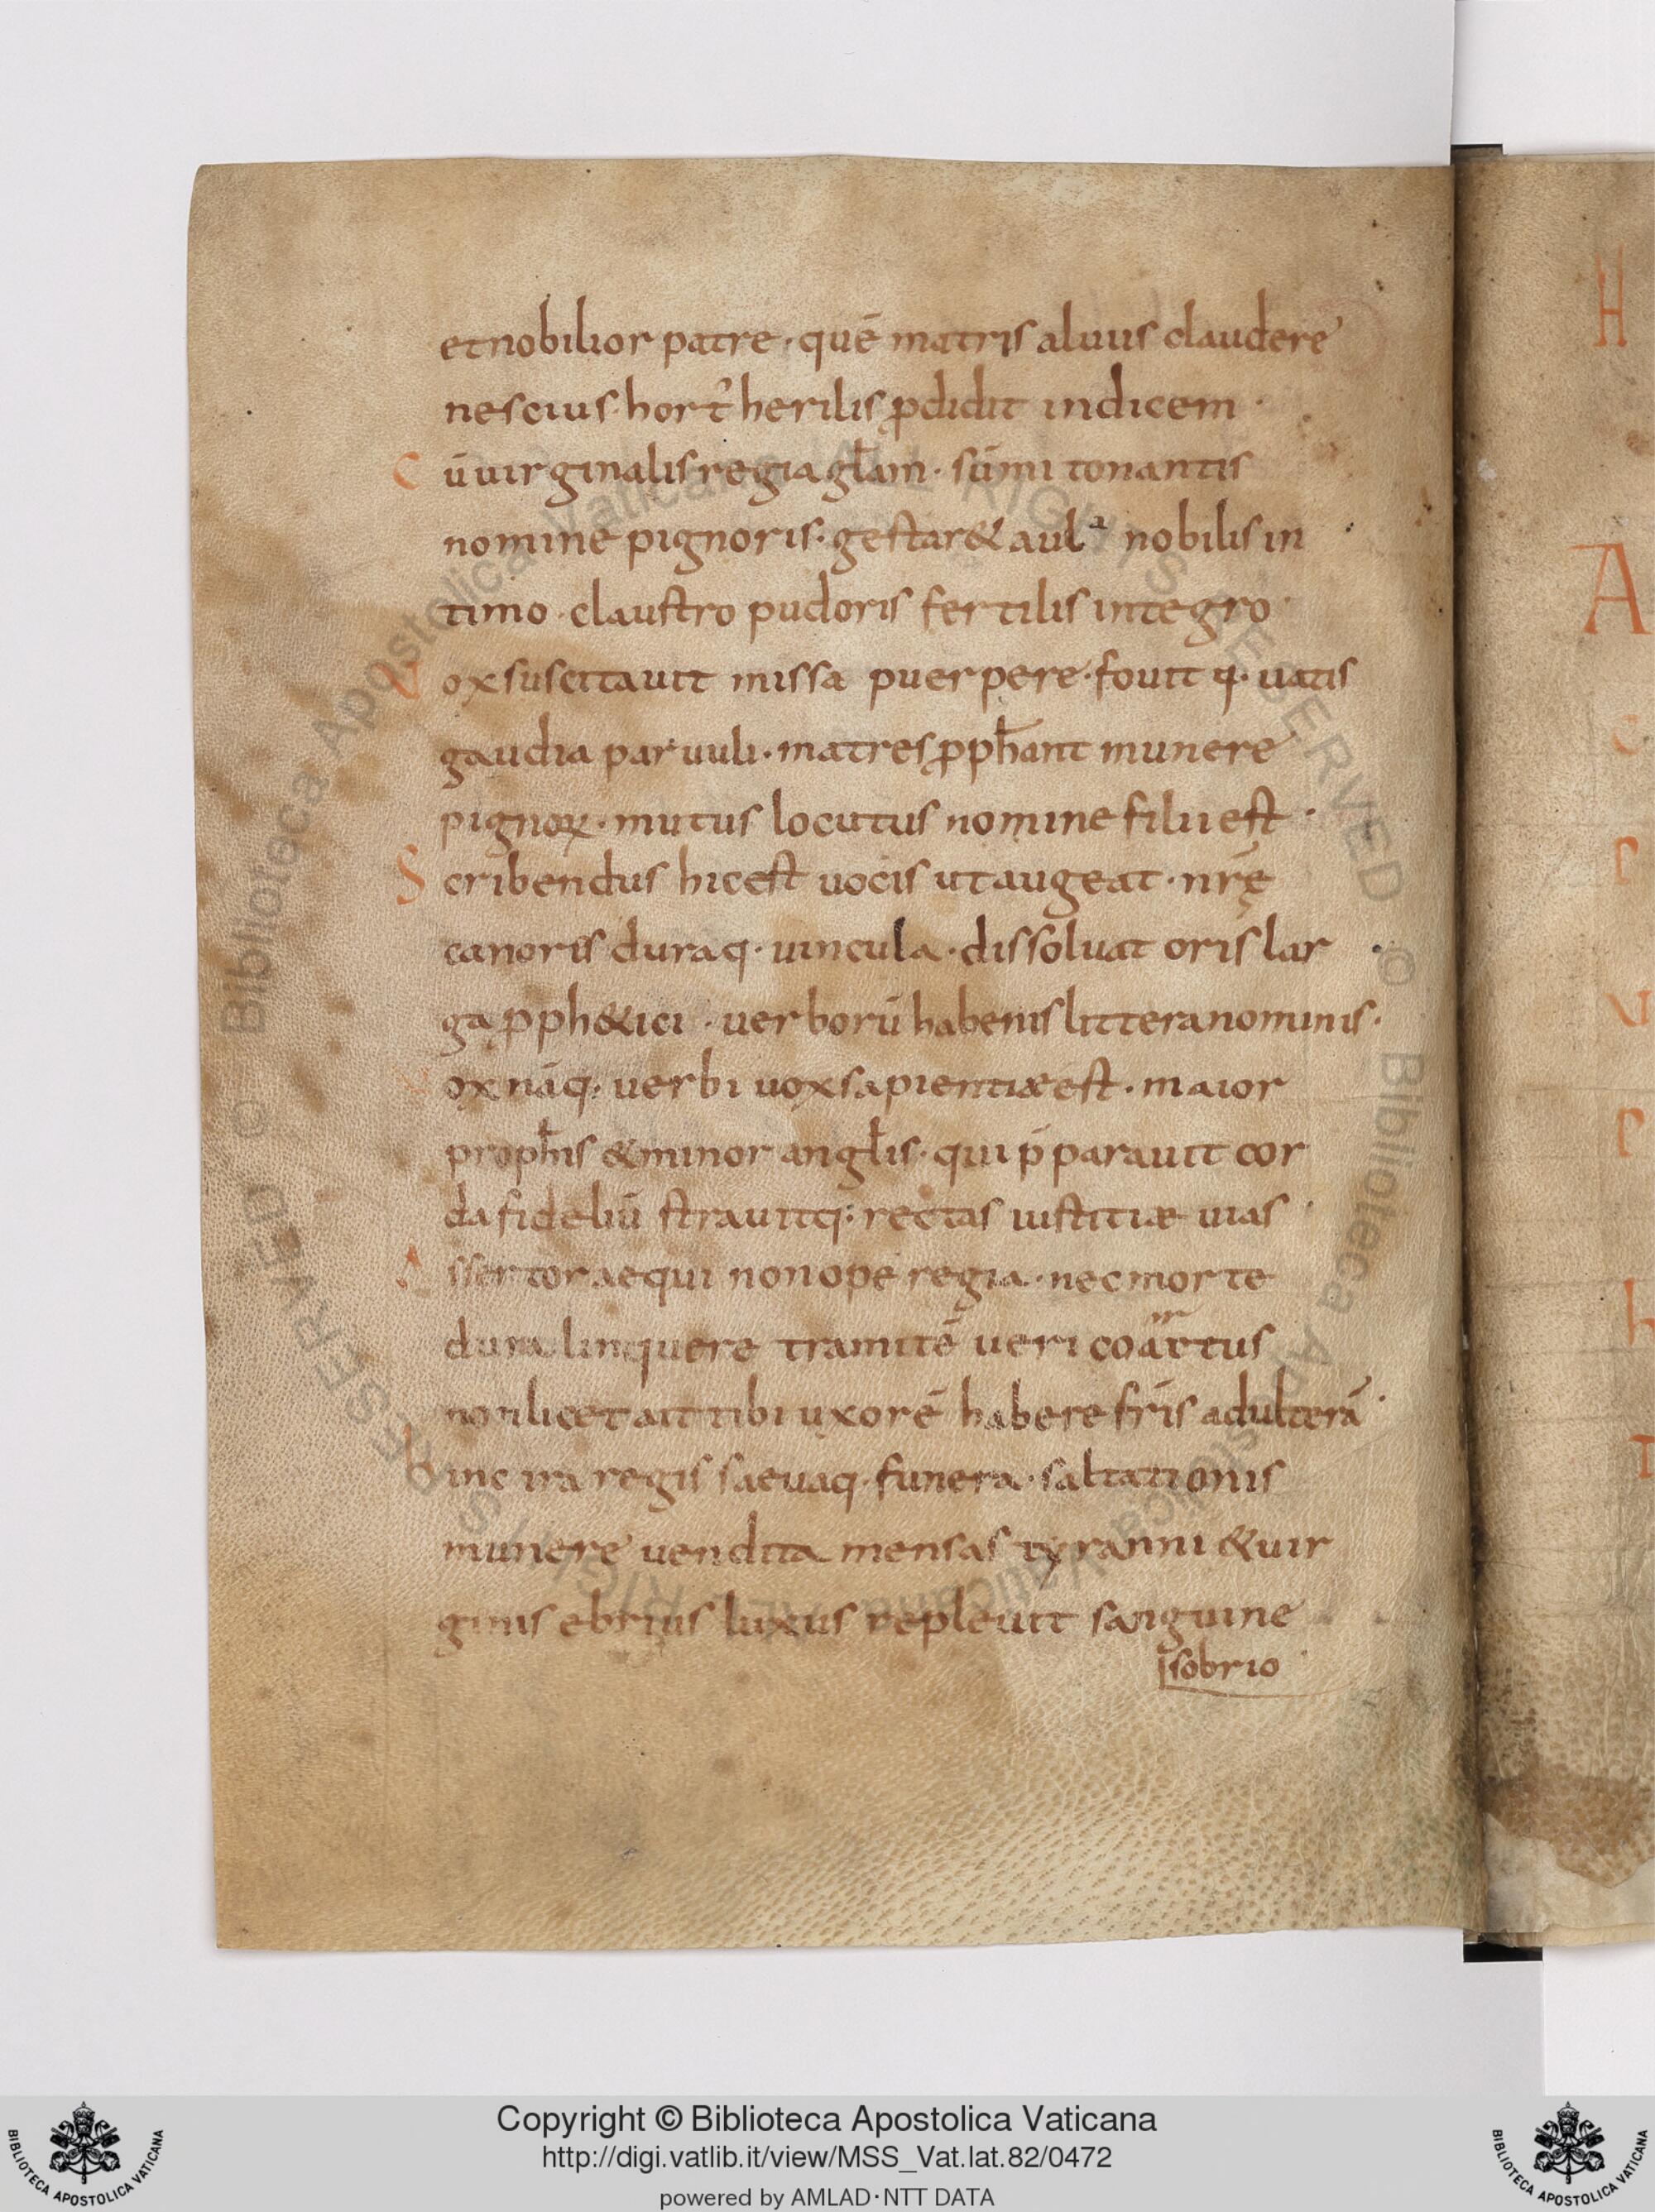 et nobilior patre · quē matris aluus claudere
nescius · hort᷒ herilis ꝓdidit indicem ·
C ū uirginalis regia głam · sūmi tonantis
nomine pignoris · gestar& aulª nobilis in
timo · claustro pudoris fertilis integro ·
V ox suscitauit missa puerpere · fouit q · uatis
gaudia paruuli · matres ꝓph̄ant munere
pignoꝝ · mutus locutus nomine filii est ·
S cribendus hic est uocis ut augeat · nr̄ę
canoris duraq · uincula · dissoluat oris lar
ga ꝓph&ici · uerborū habenis littera nominis ·
V ox nāq · uerbi uox sapientiæ est · maior
proph̄is & minor angłis · qui p̄parauit cor
da fideliū strauitq : rectas iustitiæ uias ·
A ssertor aequi non ope regia · nec morte
dura linquere tramitē ueri coartus
non licet ait tibi uxorē habere fr̄is adulterā ·
h inc ira regis saeuaq · funera · saltationis
munere uendita mensas tyranni & uir
ginis ebrius luxus repleuit sanguine
sobrio ·
H
A
C
P
V
P
h
Copyright © Biblioteca Apostolica Vaticana
http://digi.vatlib.it/view/MSS_Vat.lat.82/0472
powered by AMLAD·NTT DATA
BIBLIOTECA APOSTOLICA VATICANA
BIBLIOTECA APOSTOLICA VATICANA
© Biblioteca Apostolica Vaticana ALL RIGHTS RESERVED © Biblioteca Apostolica Vaticana ALL RIGHTS RESERVED